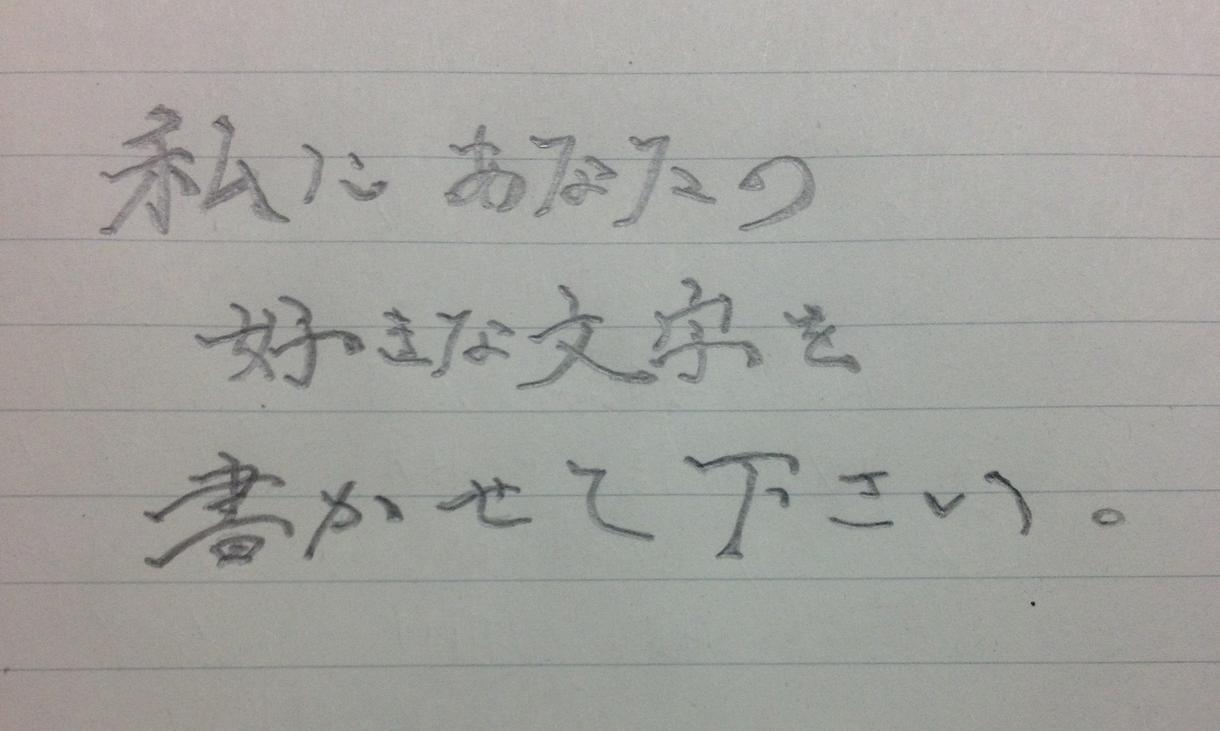 私にあなたの
好きな文字を
書かせて下さい。